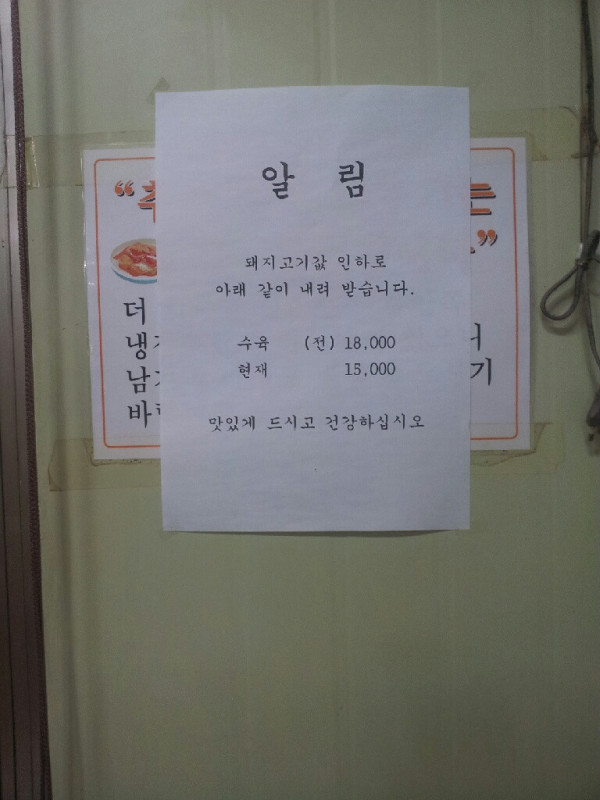 알 림
돼지고기값 인하로
아래 같이 내려 받습니다.
수육 (전) 18,000
현재 15,000
맛있게 드시고 건강하십시오
더